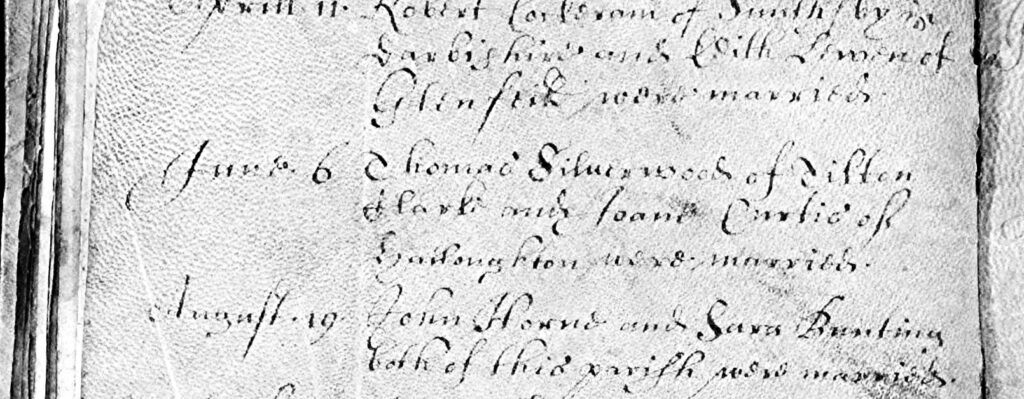 Aprill 11. Robert Cockeram of Smithsby in
Darbishire and Edith Lewen of
Glenfeild were married.
June. 6 Thomas Silverwood of Tilton
Clarke and Joane Curtis of
were married.
August. 19. John Horne and Sara Bunting
both of this parish were married.